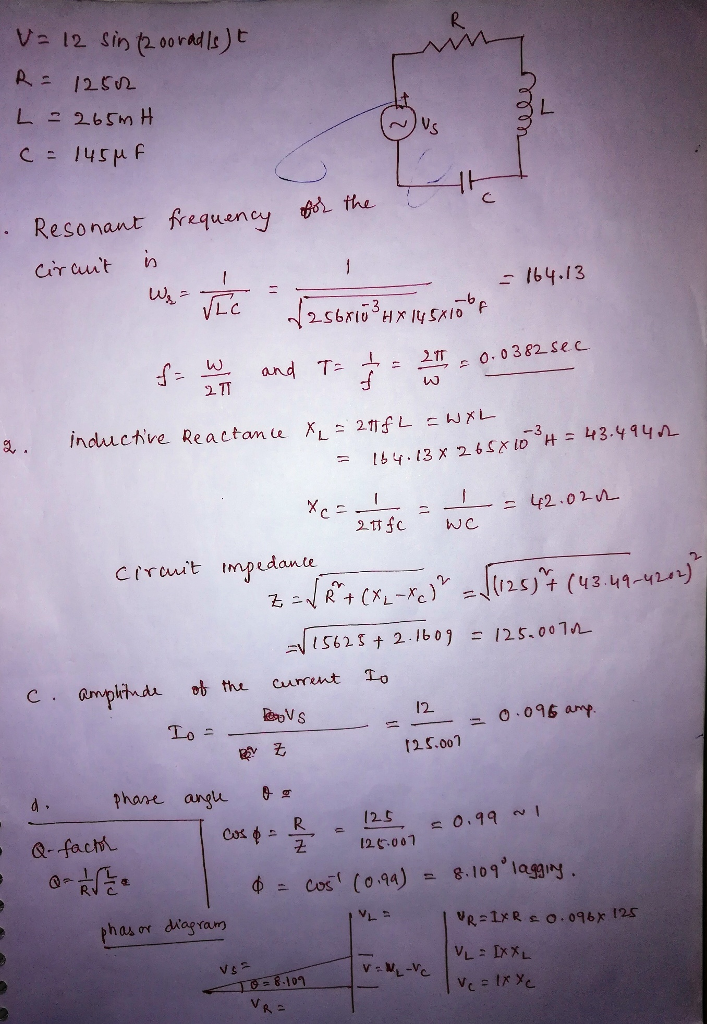 V = 12 sin (200 rad/s) t
R = 125Ω
L = 265mH
C = 145μF
R
L
+
Vs
C
. Resonant frequency for the
circuit is
Wr = 1/√LC = 1/√256×10^-3 H × 145×10^-6 F = 164.13
f = W/2π and T = 1/f = 2π/W = 0.0382 sec
2. inductive Reactance XL = 2πfL = W×L
= 164.13 × 265×10^-3 H = 43.494Ω
Xc = 1/2πfc = 1/WC = 42.02Ω
Circuit impedance
Z = √R^2 + (XL-Xc)^2 = √(125)^2 + (43.49-42.02)^2
= √15625 + 2.1609 = 125.007Ω
C. amplitude of the current Io
Io = Vs/Z = 12/125.007 = 0.096 amp.
d. phase angle θ =
cos φ = R/Z = 125/125.007 = 0.99 ~ 1
φ = cos^-1 (0.99) = 8.109° lagging.
Q-factor
Q = 1/R √L/C =
phasor diagram
Vs =
θ = 8.109
VR =
VL =
V = VL-Vc
VR = I×R = 0.096× 125
VL = I×XL
Vc = I×Xc